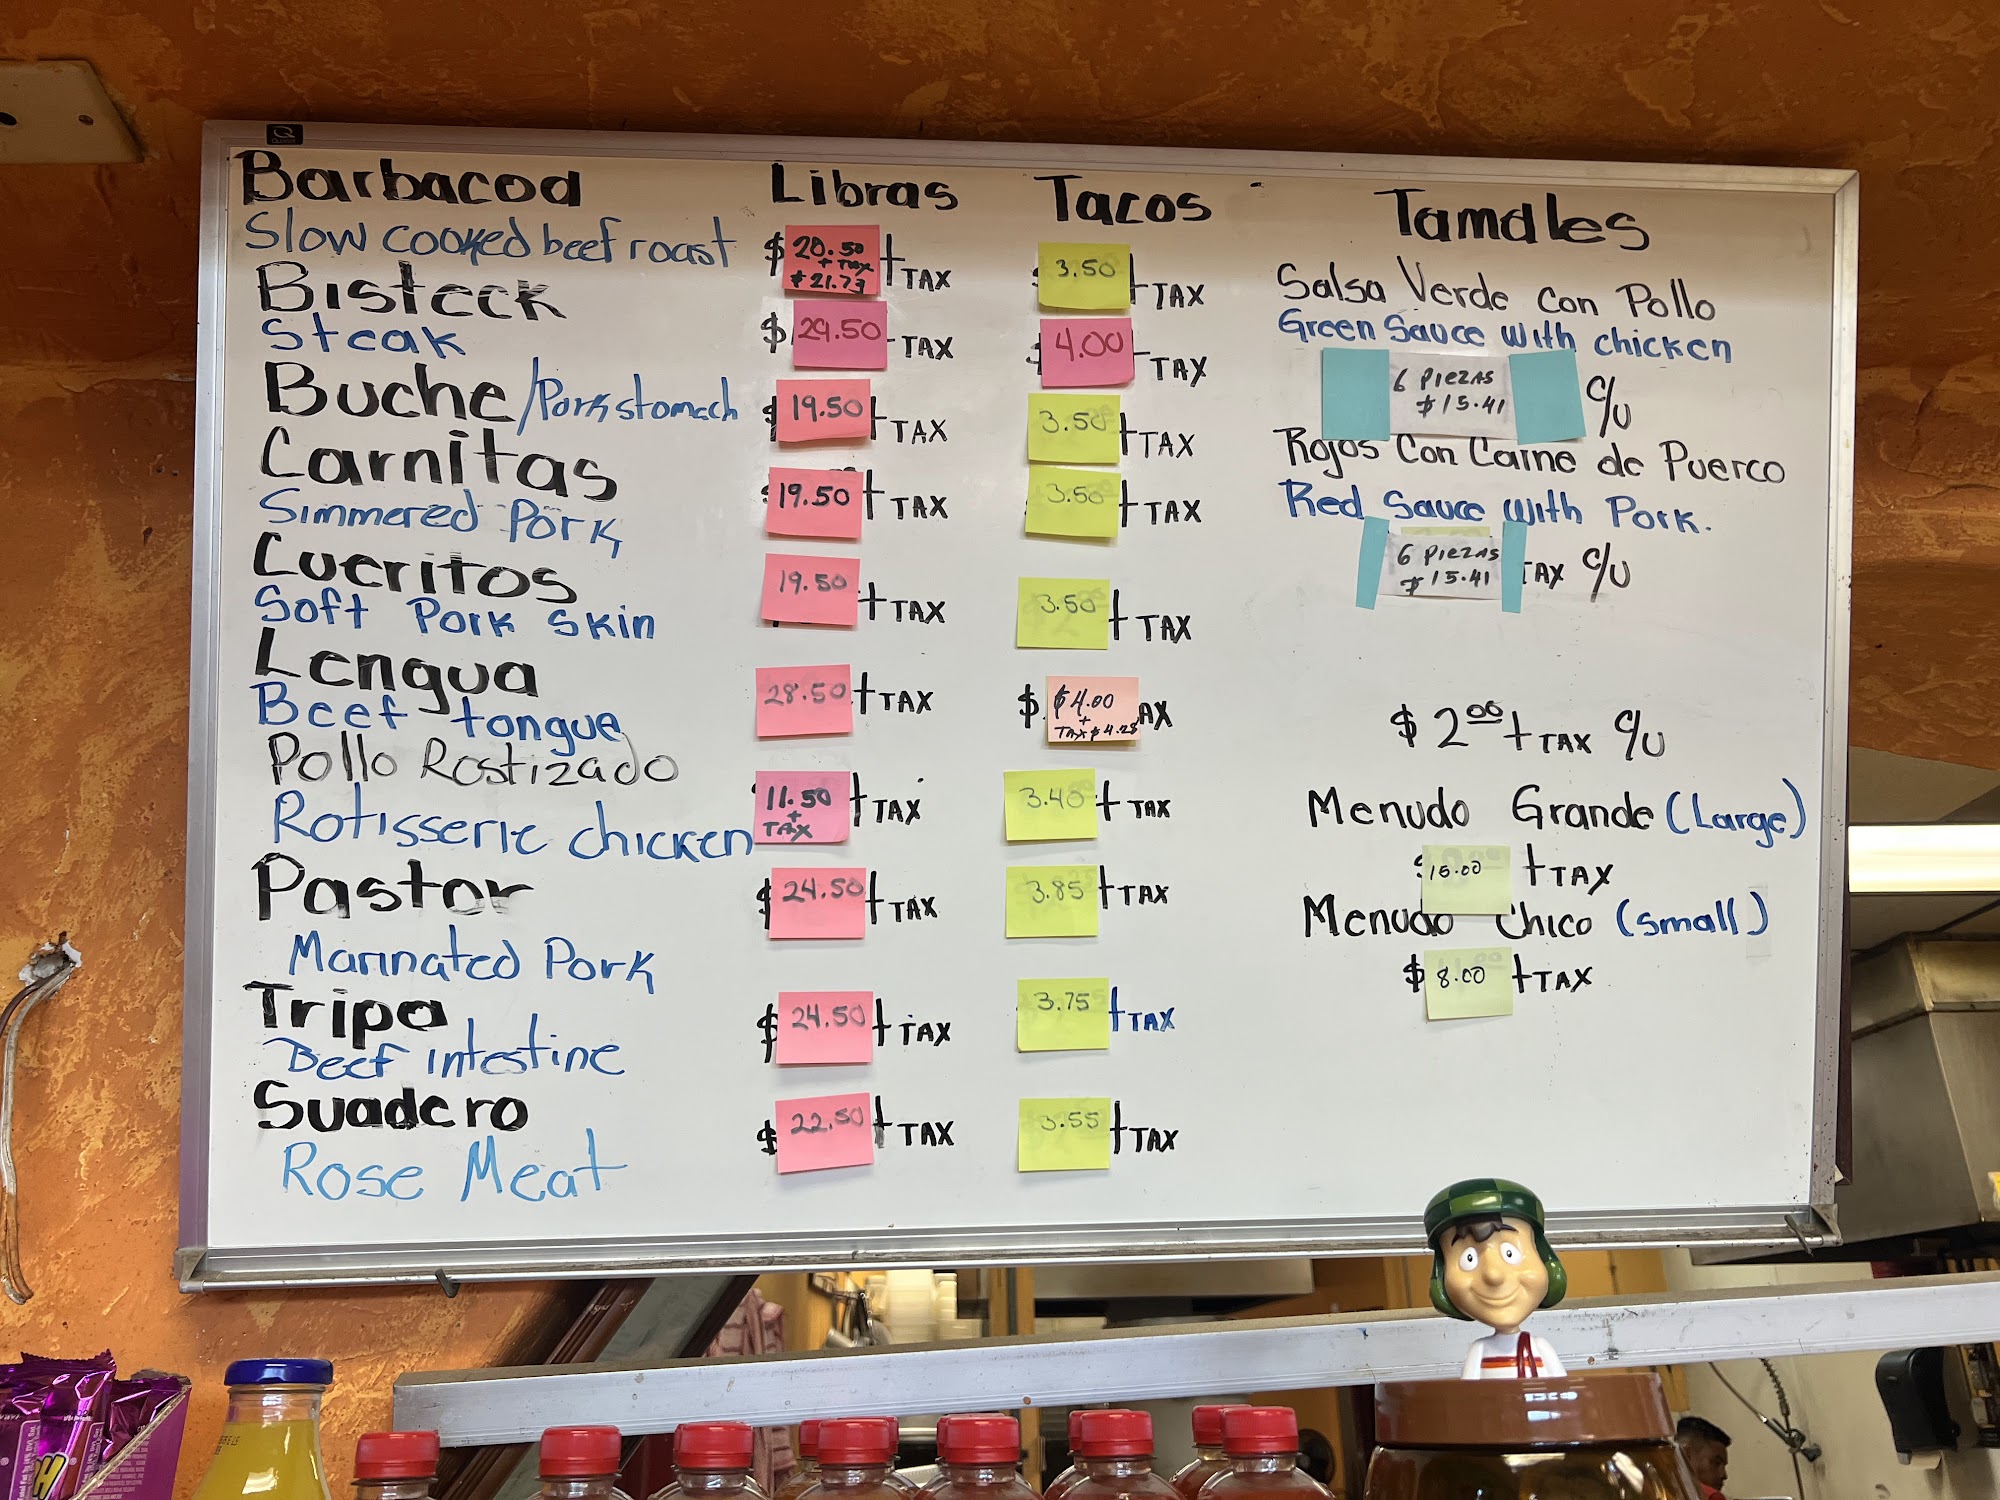 Barbacoa Libras Tacos Tamales
Slow cooked beef roast $ 20.50 + Tax $21.73 + TAX 3.50 + TAX
Salsa Verde Con Pollo
Bisteck
Steak $ 29.50 TAX 4.00 TAX
Green Sauce with chicken
6 PIEZAS
$15.41 c/u
Buche/Pork stomach $ 19.50 + TAX 3.50 + TAX
Rojos Con Carne de Puerco
Carnitas
Simmered Pork 19.50 + TAX 3.50 + TAX
Red Sauce with Pork.
6 PIEZAS
$15.41 TAX c/u
Cueritos
Soft Pork Skin 19.50 + TAX 3.50 + TAX
Lengua
Beef tongue 28.50 + TAX $ $4.00 + TAX $4.25 AX
$ 2.00 + TAX c/u
Pollo Rostizado
Rotisserie chicken 11.50 + TAX + TAX 3.40 + TAX
Menudo Grande (Large)
15.00 + TAX
Pastor $ 24.50 + TAX 3.85 + TAX
Marinated Pork
Menudo Chico (small)
$ 8.00 + TAX
Tripa
Beef intestine $ 24.50 + TAX 3.75 + TAX
Suadero $ 22.50 + TAX 3.55 + TAX
Rose Meat